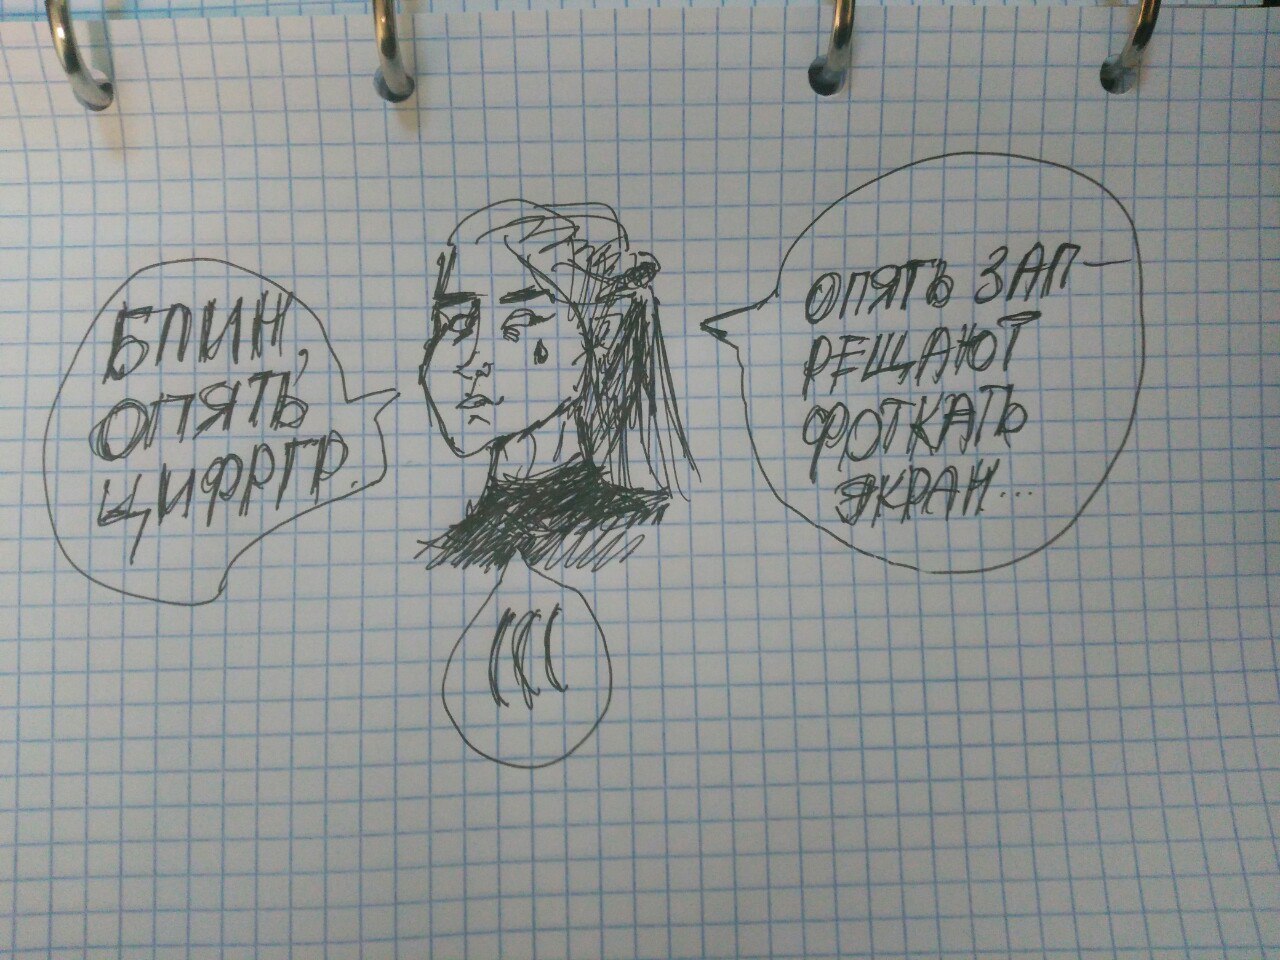 БЛИН,
ОПЯТЬ
ЦИФРГР.
ОПЯТЬ ЗАП-
РЕЩАЮТ
ФОТКАТЬ
ЭКРАН...
(((